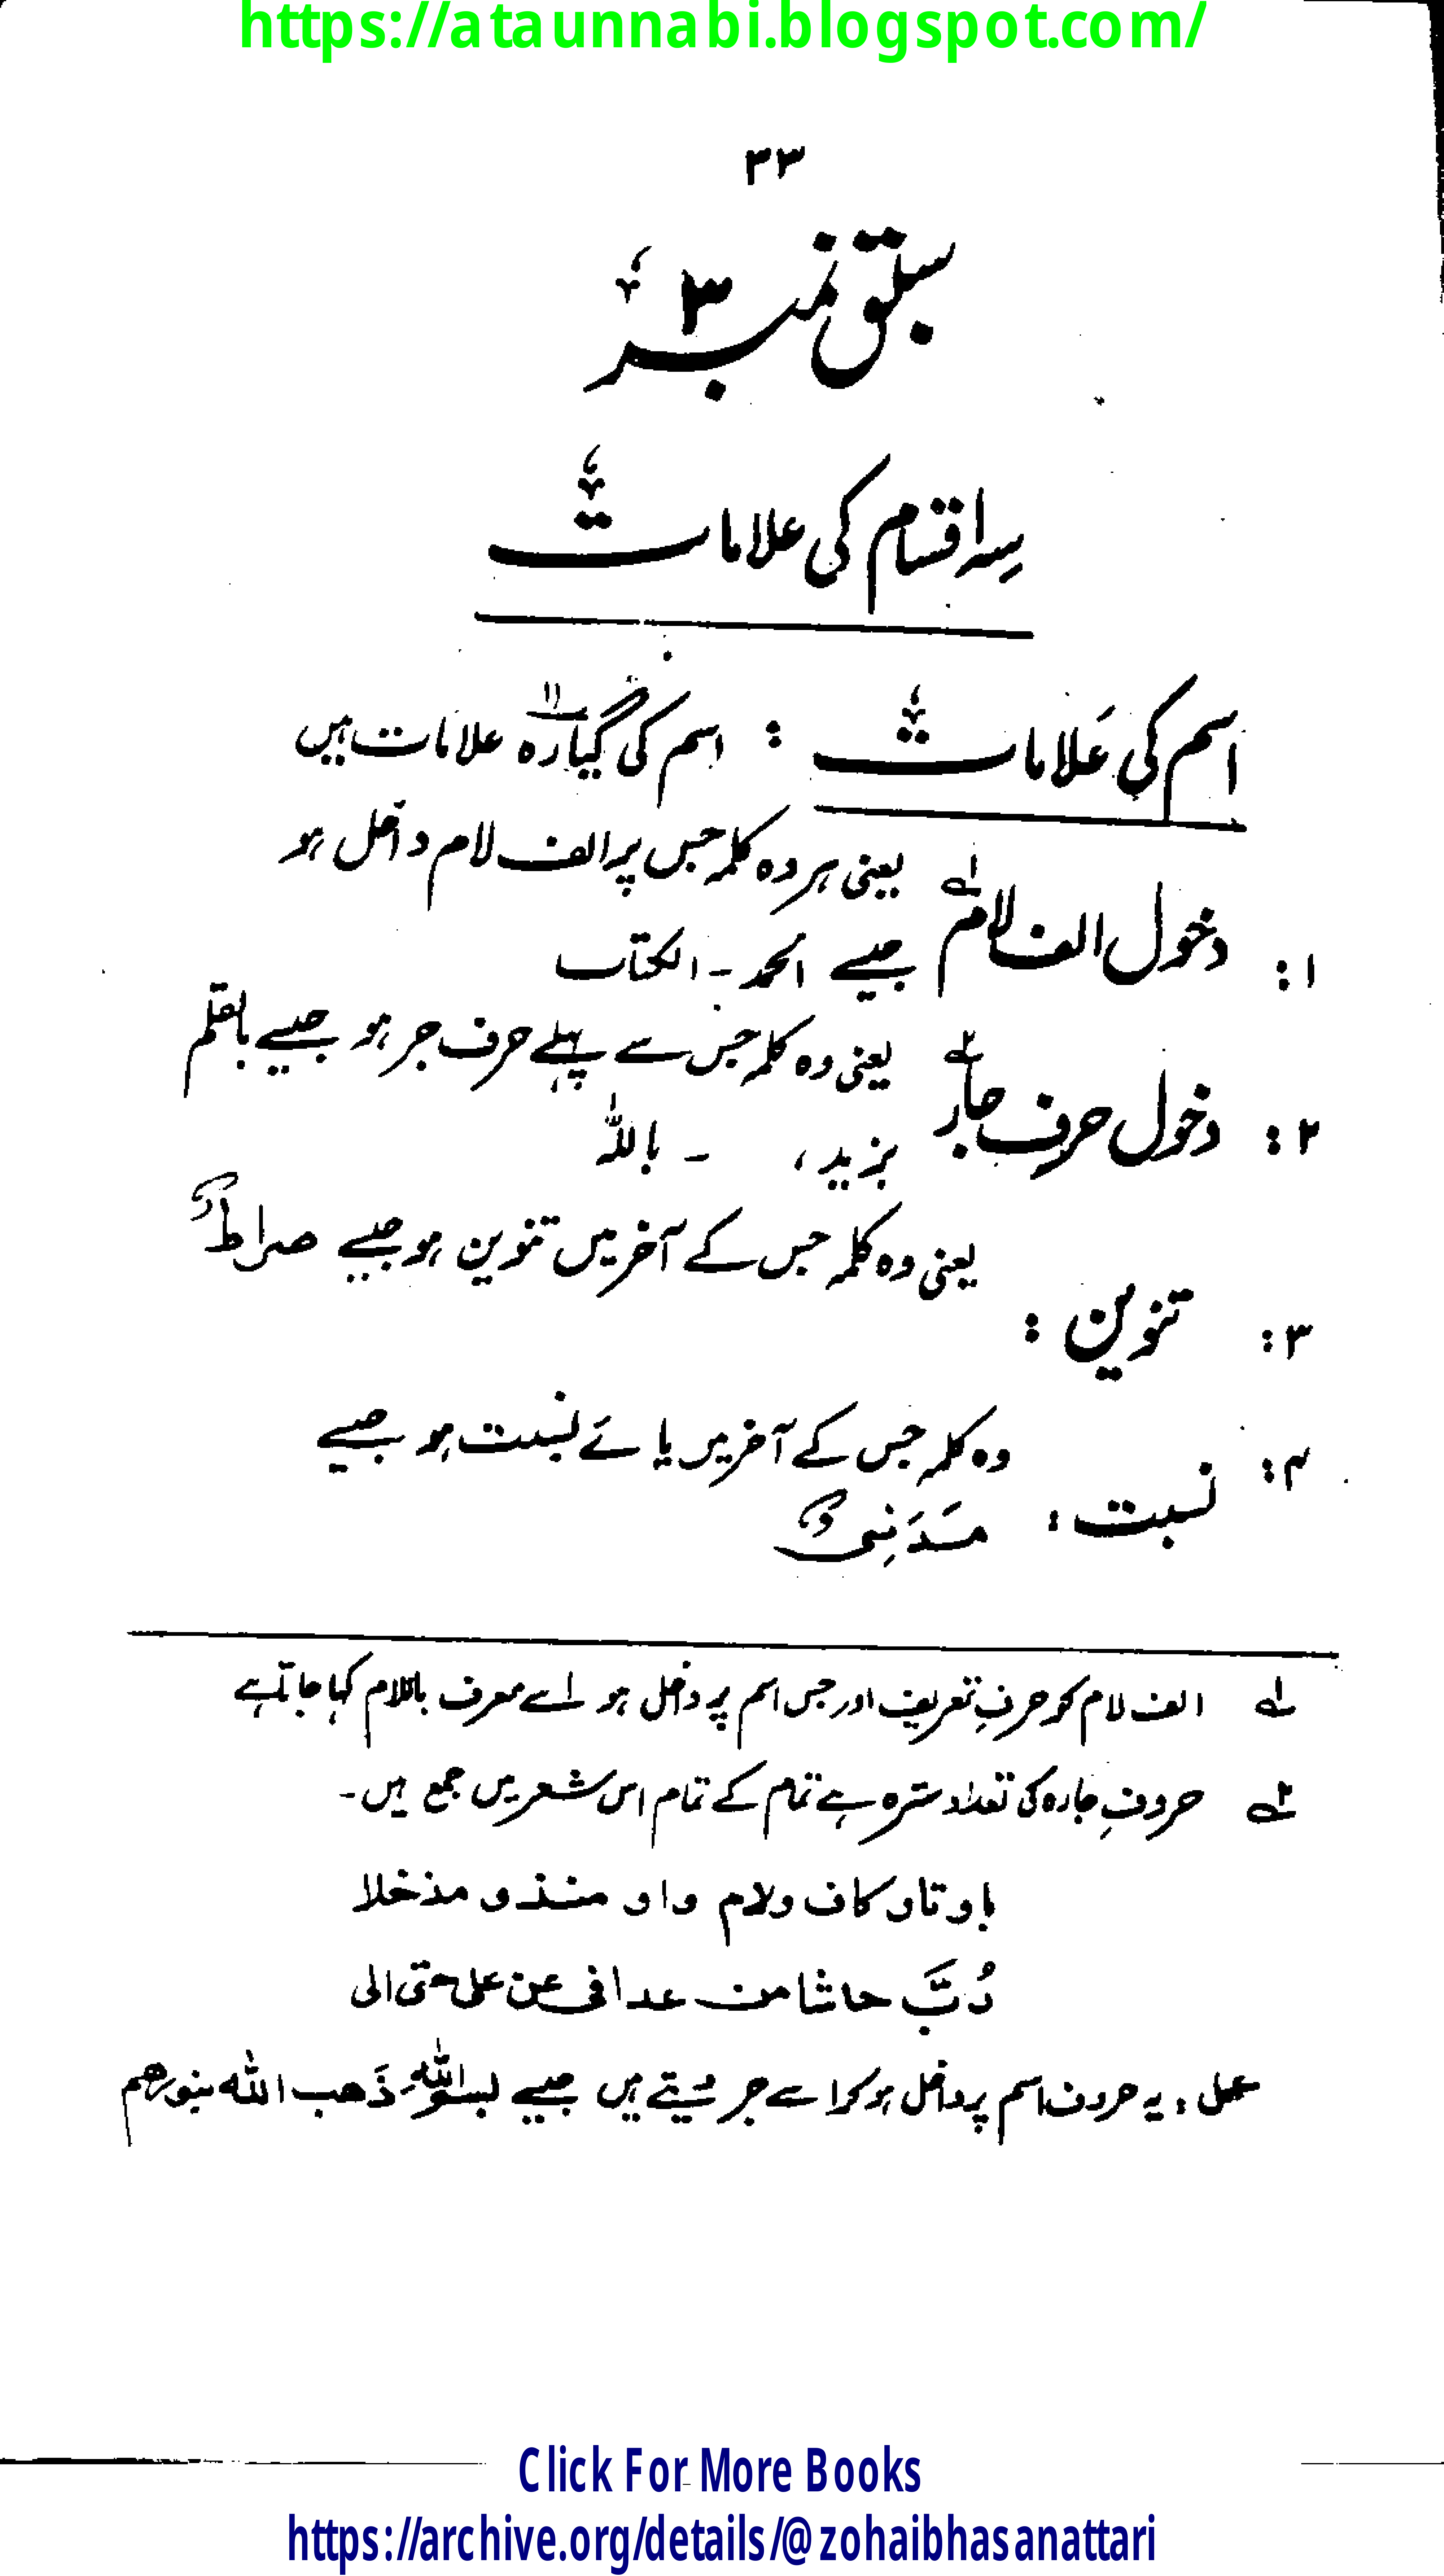 https://ataunnabi.blogspot.com/
۳۳
سبق نمبر ۳
سہ اقسام کی علامات
اسم کی عَلامات : اسم کی گیارہ ۱۱ علامات ہیں
۱: دخول الف لام ۱ے یعنی ہر وہ کلمہ جس پر الف لام داخل ہو
جیسے الحمد - الکتاب
۲: دخول حرف جار ۲ے یعنی وہ کلمہ جس سے پہلے حرف جر ہو جیسے بالقلم
بزید ، - باللہ
۳: تنوین : یعنی وہ کلمہ جس کے آخر میں تنوین ہو جیسے صراطٌ
۴: نسبت : وہ کلمہ جس کے آخر میں یائے نسبت ہو جیسے
مَدَنِیٌ
۱ے الف لام کو حرفِ تعریف اور جس اسم پر داخل ہو اسے معرف باللام کہا جاتا ہے
۲ے حروفِ جارہ کی تعداد سترہ ہے تمام کے تمام اس شعر میں جمع ہیں -
با و تا و کاف و لام و او منذ و مذ خلا
رُبَّ حاشا من عدا فی عن علی حتی الی
عمل : یہ حروف اسم پر داخل ہو کر اسے جر دیتے ہیں جیسے بسم اللہِ ذَھب اللہ بنورھم
Click For More Books
https://archive.org/details/@zohaibhasanattari